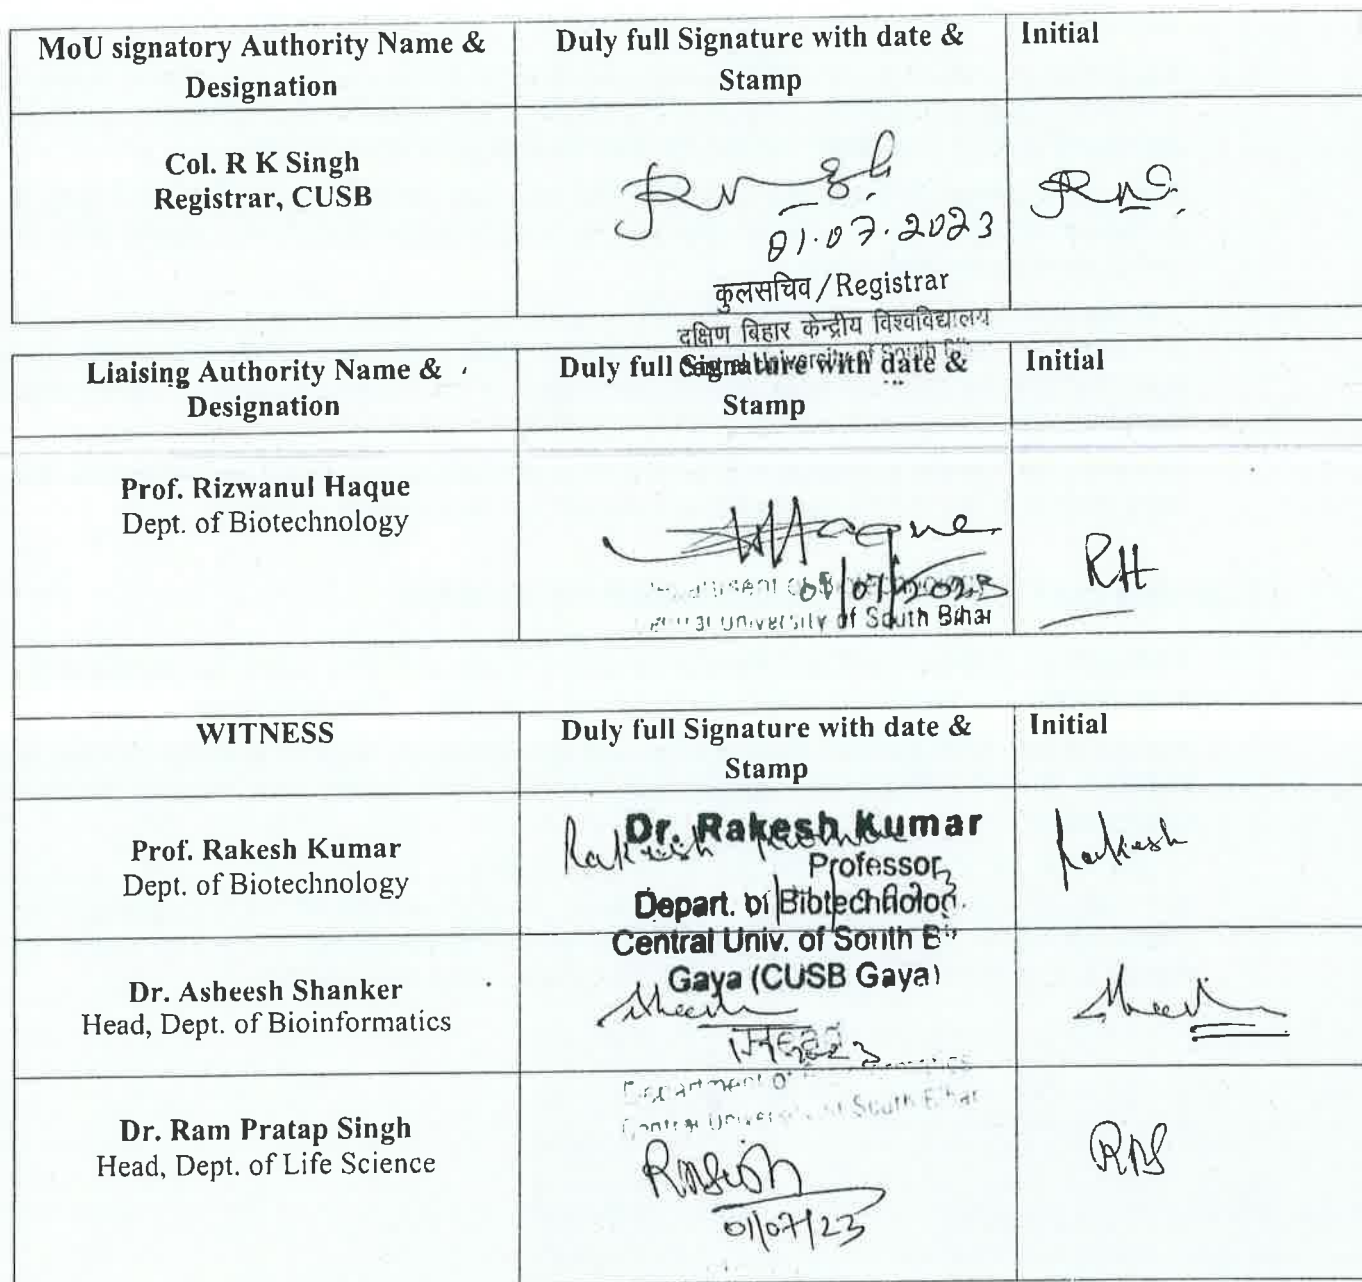 MoU signatory Authority Name &
Designation
Duly full Signature with date &
Stamp
Initial
Col. R K Singh
Registrar, CUSB
01.07.2023
कुलसचिव/Registrar
दक्षिण बिहार केन्द्रीय विश्वविद्यालय
Central University of South
Liaising Authority Name &
Designation
Duly full Signature with date &
Stamp
Initial
Prof. Rizwanul Haque
Dept. of Biotechnology
Haque
01/07/2023
Department of Biotechnology
Central University of South Bihar
RH
WITNESS
Duly full Signature with date &
Stamp
Initial
Prof. Rakesh Kumar
Dept. of Biotechnology
Rakesh Kumar
Dr. Rakesh Kumar
Professor
Depart. of Biotechnolog
Central Univ. of South Bi
Gaya (CUSB Gaya)
Rakesh
Dr. Asheesh Shanker
Head, Dept. of Bioinformatics
Department of
Central University of South Bihar
Dr. Ram Pratap Singh
Head, Dept. of Life Science
01/07/23